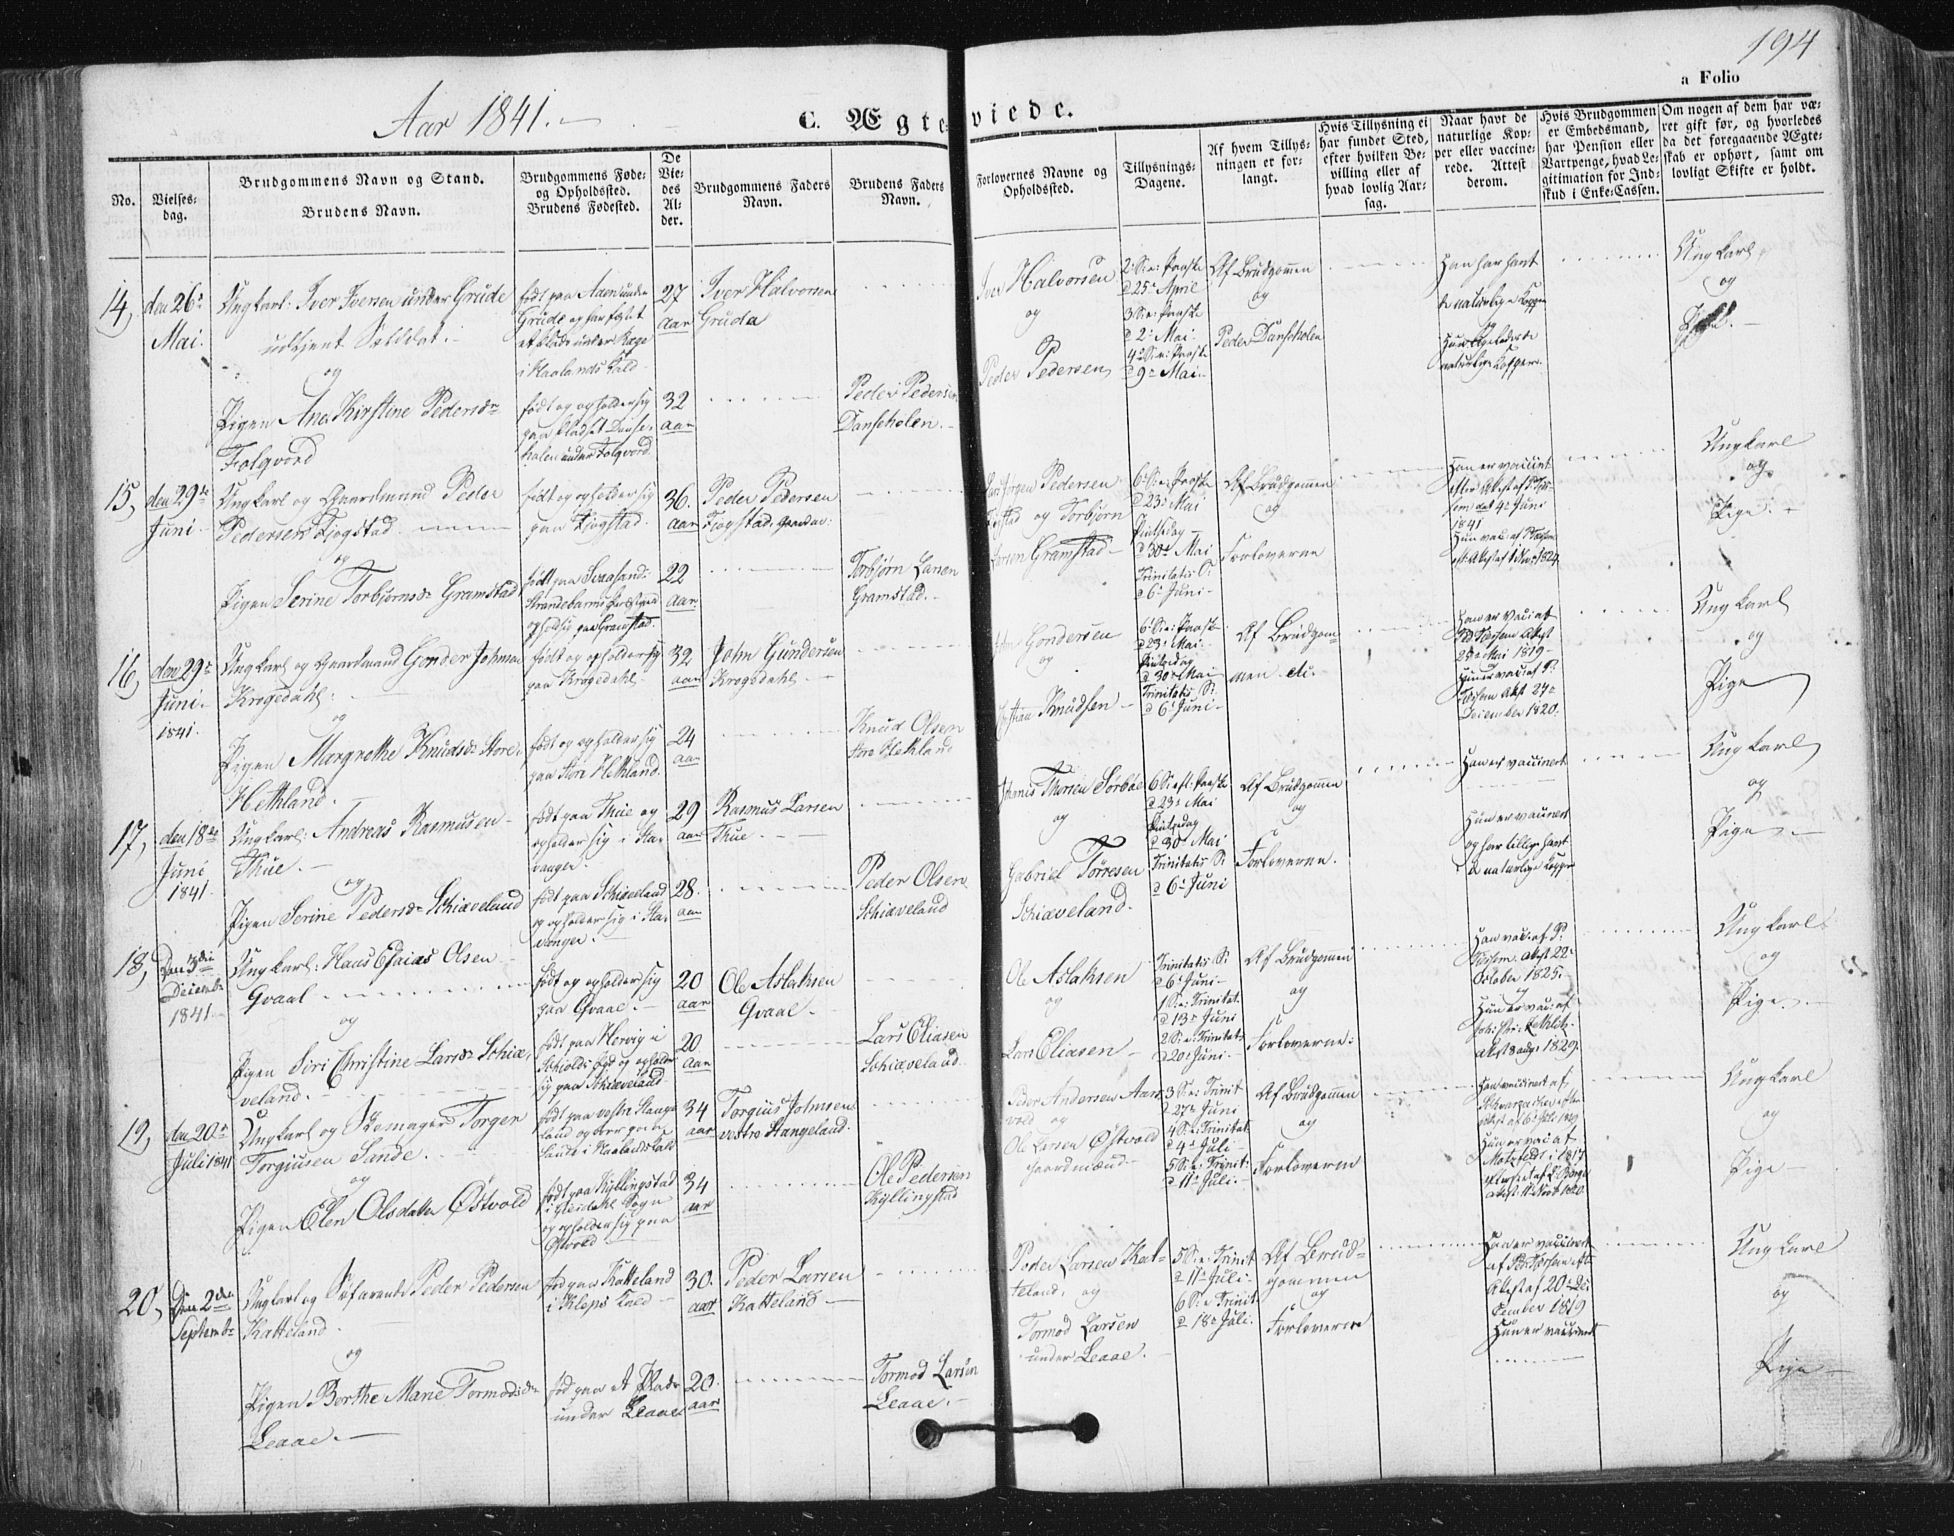 194
a Folio
Aar 1841.
C. Ægteviede.
No.
Vielses-
dag.
Brudgommens Navn og Stand.
Brudens Navn.
Brudgommens Føde-
og Opholdssted.
Brudens Fødested.
De
Vie-
des
Al-
der.
Brudgommens Faders
Navn.
Brudens Faders
Navn.
Forlovernes Navne og
Opholdssted.
Tillysnings-
Dagene.
Af hvem Tillys-
ningen er for-
langt.
Hvis Tillysning ei
har fundet Sted,
efter hvilken Be-
villing eller af
hvad lovlig Aar-
sag.
Naar havt de
naturlige Kop-
per eller vaccine-
rede. Attest
derom.
Hvis Brudgommen
er Embedsmand,
har Pension eller
Vartpenge, hvad Le-
gitimation for Ind-
skud i Enke-Cassen.
Om nogen af dem har væ-
ret gift før, og hvorledes
da det foregaaende Ægte-
skab er ophørt, samt om
lovligt Skifte er holdt.
14,
den 26de
Mai.
Ungkarl: Iver Iversen under Grude
udtjent Soldat.
og
Pigen Ana Kirstine Pedersdr
Folqvord
født paa Aaen under
Grude
i Haalands Kald
født og opholder sig
paa Pladset Danse-
holen under Folqvord
27
aar
32
aar
Iver Halvorsen
Gruda
Peder Pedersen
Danseholen.
Iver Halvorsen
og
Peder Pedersen
2: S: e: Paaske
d 25de April
3 S: e: Paaske
d 2: Mai.
4: S: e: Paaske
d 9de Mai
Af Brudgommen
og
Peder Danseholen
Han har havt
de naturlige Kopper
naturlige Kopper.
Ungkarl
og
Pige.
15,
den 29de
Juni.
Ungkarl og Gaardmand Peder
Pedersen Fjogstad
og
Pigen Serine Torbjørnsdr Gramstad
født og opholder sig
paa Fjogstad.
født paa
opholdsig paa Gramstad.
36.
aar
22
aar
Peder Pedersen
Fjogstad, Gaardm:
Torbjørn Larsen
Gramstad.
Pedersen
og Torbjørn
Larsen Gramstad
6: S: e: Paaske
d 23de Mai
Pintsedag
d 30de Mai
Trinitatis S:
d 6: Juni
Af Brudgommen
og
Forloverne
Han er vaccineret
efter Attest af
4de Juni
1841
Ungkarl
og
Pige.
16,
den 29de
Juni.
1841.
Ungkarl og Gaardmand Gonder Johnsen
Krogedahl.
og
Pigen Margrethe Knudsdr Store
Hethland.
født og opholder sig
paa Krogedahl
født og opholder sig
paa Store Hethland.
32
aar
24
aar
John Gundersen
Krogsdahl.
Knud Olsen
store Hethland
John Gondersen
og
Knudsen
6: S: e: Paaske
d 23de Mai
Pintsedag
d 30de Mai
Trinitatis S:
d 6: Juni
Af Brudgom-
men etc.
Han er vacc: af
Attest
28de Mai 1819
Hun er vacc: af
Att 27de
December 1820.
Ungkarl
og
Pige
17,
den 18de
Juni
1841.
Ungkarl: Andreas Rasmusen
Thue.
og
Pigen Serine Pedersdr Schiæveland
født paa Thue og
opholder sig i Sta-
vanger.
født paa Schiæveland
og opholder sig i Sta-
vanger.
29
aar
28.
aar
Rasmus Larsen
Thue.
Peder Olsen
Schiæveland
og
Gabriel Tørresen
Schiæveland.
6 S: eft: Paaske
d 23de Mai
Pintsedag
d 30 Mai
Trinitatis S:
d 6: Juni
Af Brudgommen
og
Forloverne.
Han er vaccineret
Hun er vaccineret
og har tillige havt
de naturlige Kopper
Ungkarl
og
Pige
18,
Den 3die
Decembr
1841.
Ungkarl: Hans Esaias Olsen
Gvaal
og
Pigen Siri Christine Larsdr Schiæ-
veland.
født og opholder sig
paa Gvaal.
født paa Hervig i
og opholder
sig paa Schiæveland
20
aar
20
aar
Ole Aslaksen
Gvaal.
Lars Eliasen
Schiæveland.
Ole Aslaksen
og
Lars Eliasen
Trinitatis S:
d 6: Juni
1 S: e: Trinitat.
d 13de Juni
2 S: e: Trinitat:
d 20: Juni
Af Brudgommen
og
Forloverne:
Han vacc: af P:
Attest 22:
October 1825.
og
Hun er vacc: af
1829.
Ungkarl
og
Pige.
19,
den 20de
Juli 1841
Ungkarl og Skomager Torger
Torgiusen Sande.
og
Pigen Elen Olsdatter Østvold
født paa vestre Stange-
land
født paa Kyllingstad
og opholder sig paa
Østvold
34
aar
34
aar
Torgius Johnsen
vestre Stangeland.
Ole Pedersen
Kyllingstad
Peder Andersen Aars-
vold og
Ole Larsen Østvold
Gaardmænd
3 S: e: Trinit
d 27de Juni
4 S: e: Trinitat.
d 4de Juli
5 S: e: Trinit:
d 11te Juli.
Af Brudgommen
og
Forloverne
Han vaccineret af
Hun er vacc: af
Ungkarl
og
Pige
20,
Den 2den
Septembr
Ungkarl og Søfarende Peder Pedersen
Katteland.
og
Pigen Berthe Marie Tormodsdr
Leaae.
fød paa Katteland
i Kleps Præd
fød paa et Plads
under Leaae
30.
aar
20.
aar
Peder Larsen
Katteland
Tormod Larsen
Leaae.
Peder Larsen Kat-
teland, og
Tormod Larsen
under Leaae.
5 S: e: Trinit
d 11te Juli
6 S: e Trinit:
d 18de Juli.
Af Brud-
gommen
og
Forloverne
Han er vaccineret
Attest af 20de De-
cember 1819
Hun er vaccineret
Ungkarl
og
Pige